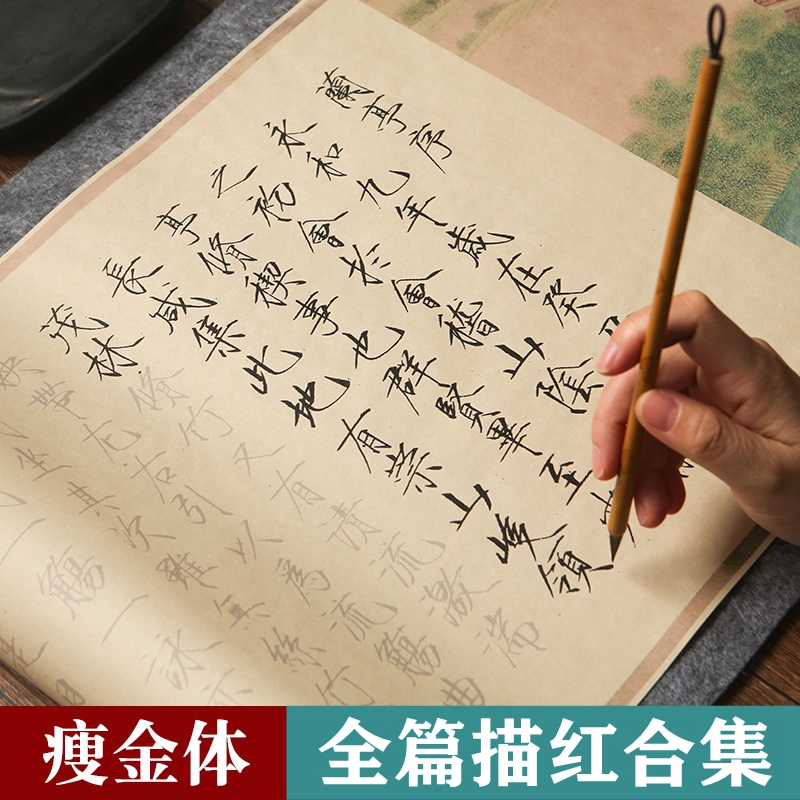 蘭亭序
永和九年歲在癸
之初會於會稽山陰
亭脩禊事也群賢畢至
長咸集此地有崇山峰領
茂林脩竹又有清流激湍
暎帶左右引以為流觴曲
坐其次雖無絲竹
一觴一詠亦
瘦金体
全篇描红合集